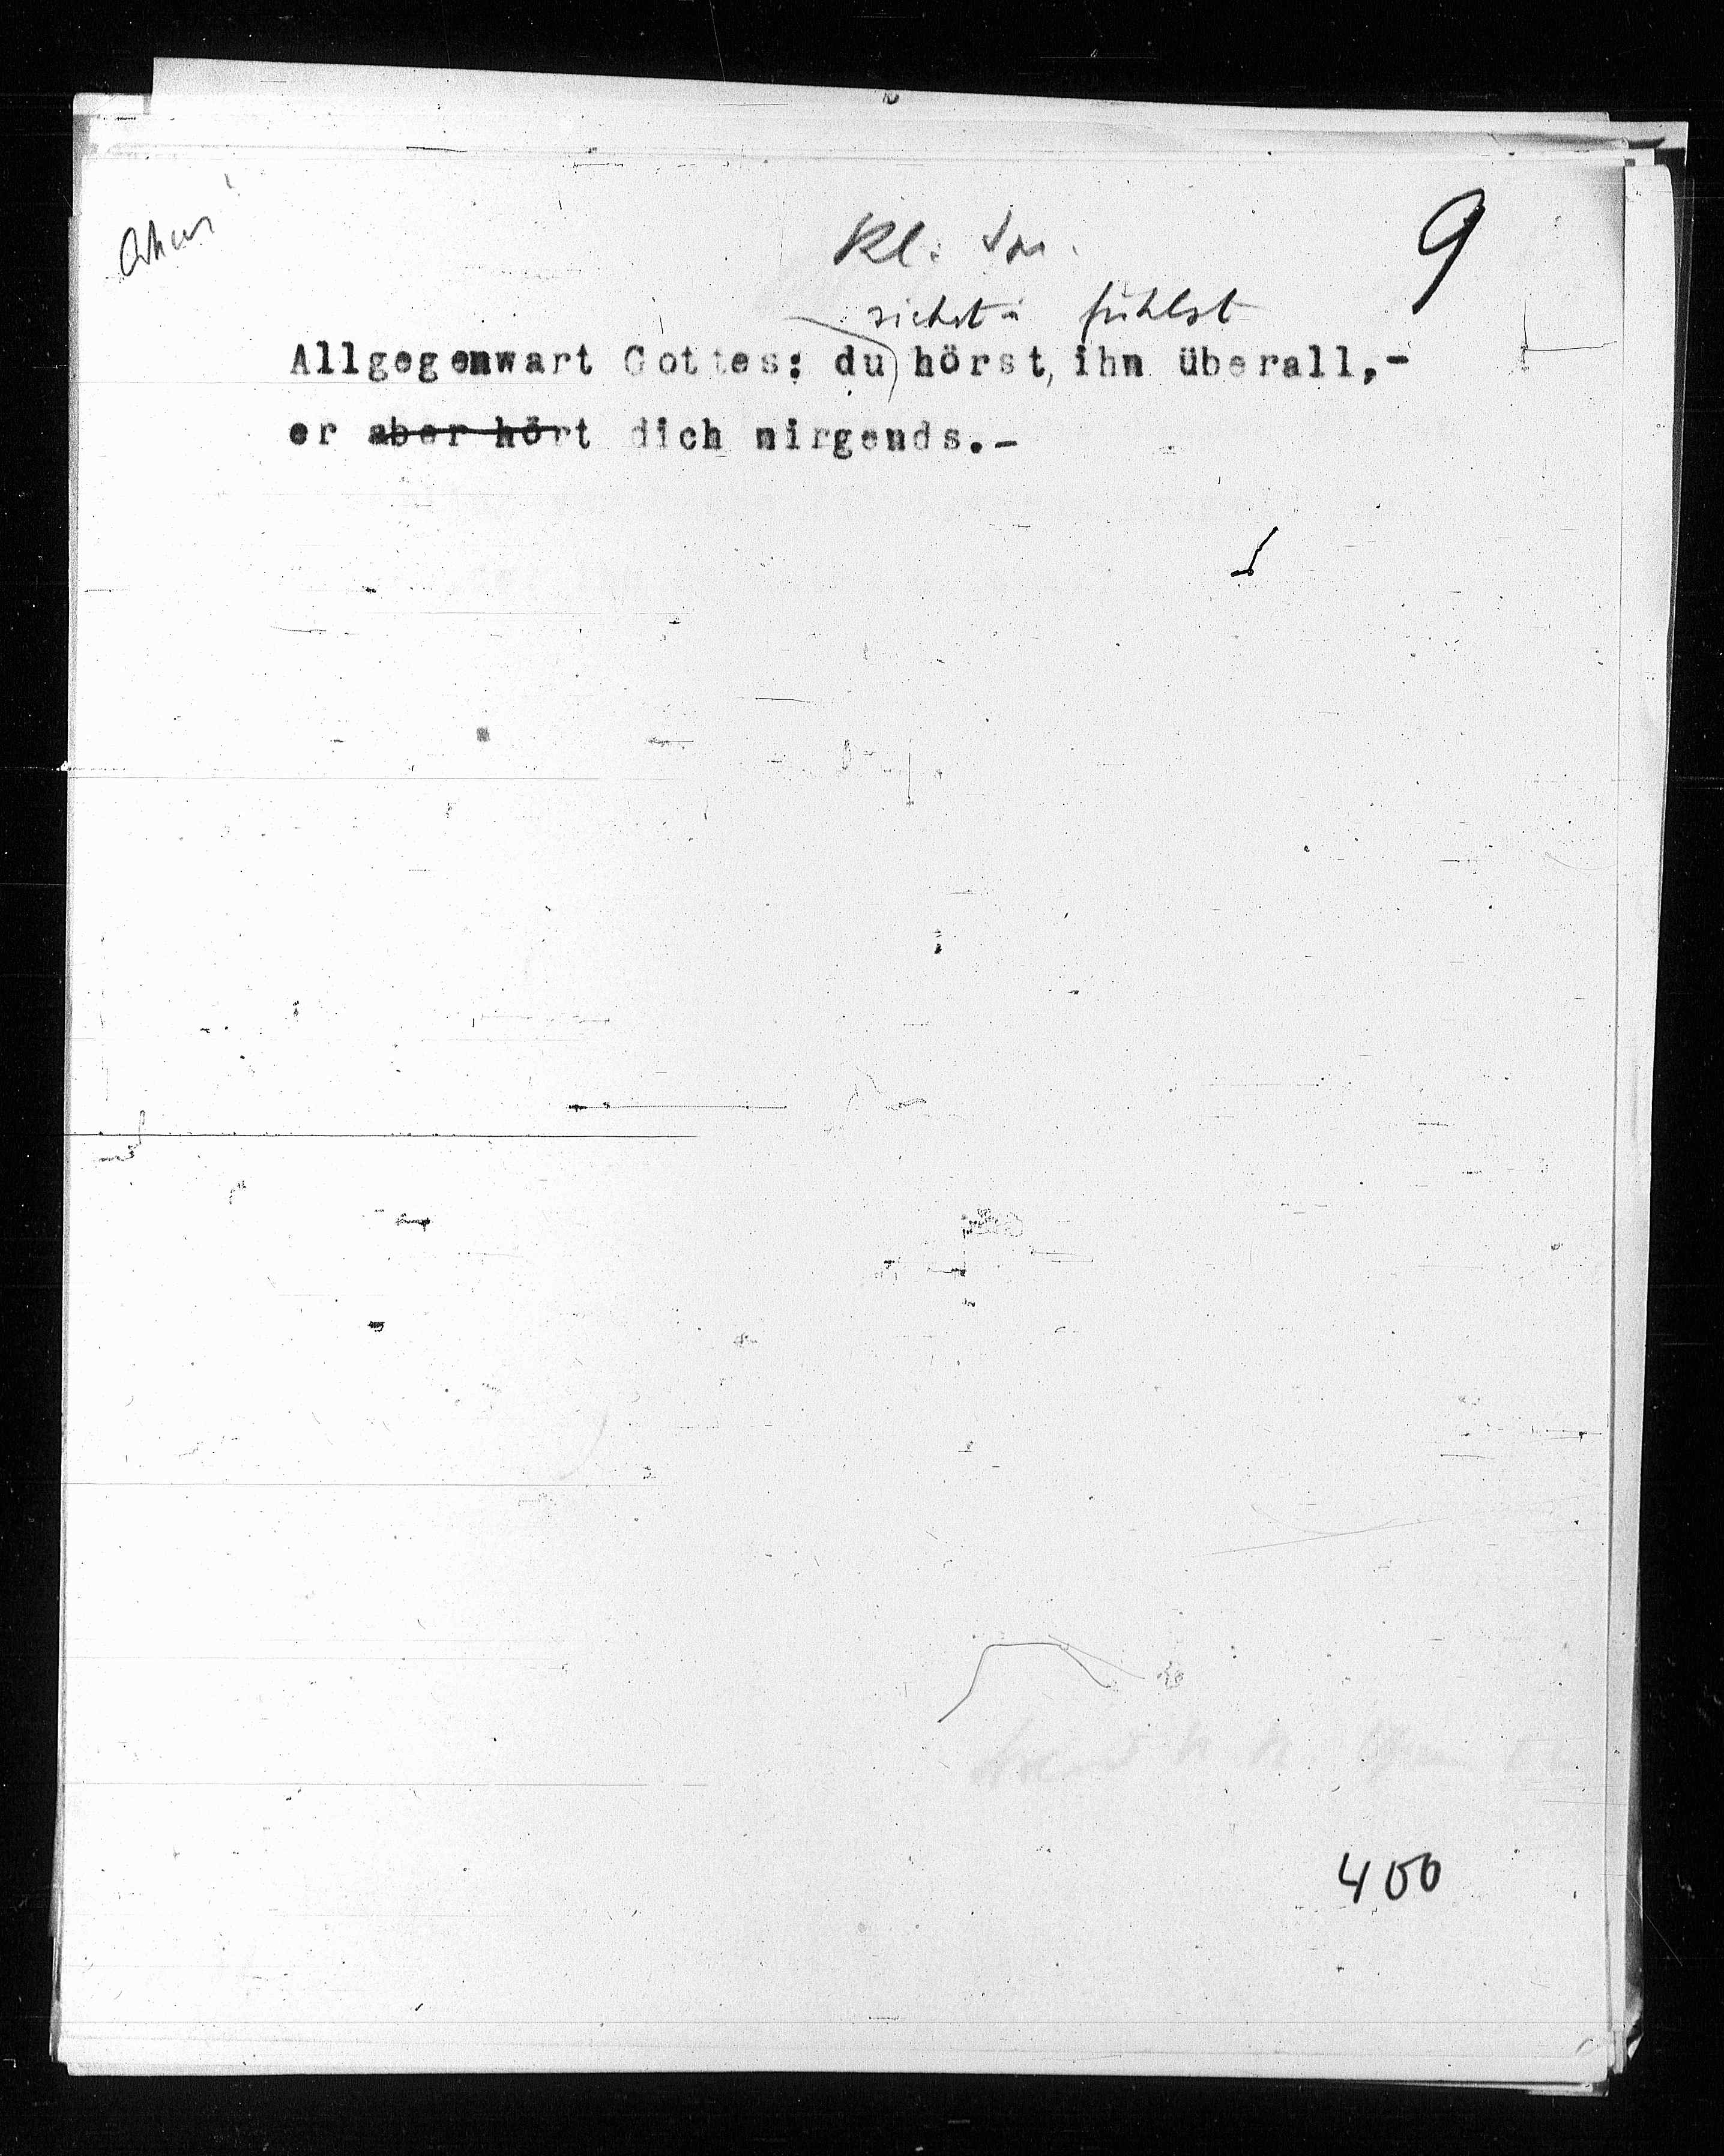 9
Kl. Spr.
siehst fühlst
Allgegenwart Gottes: du hörst, ihn überall,-
er aber hört dich nirgends.-
400